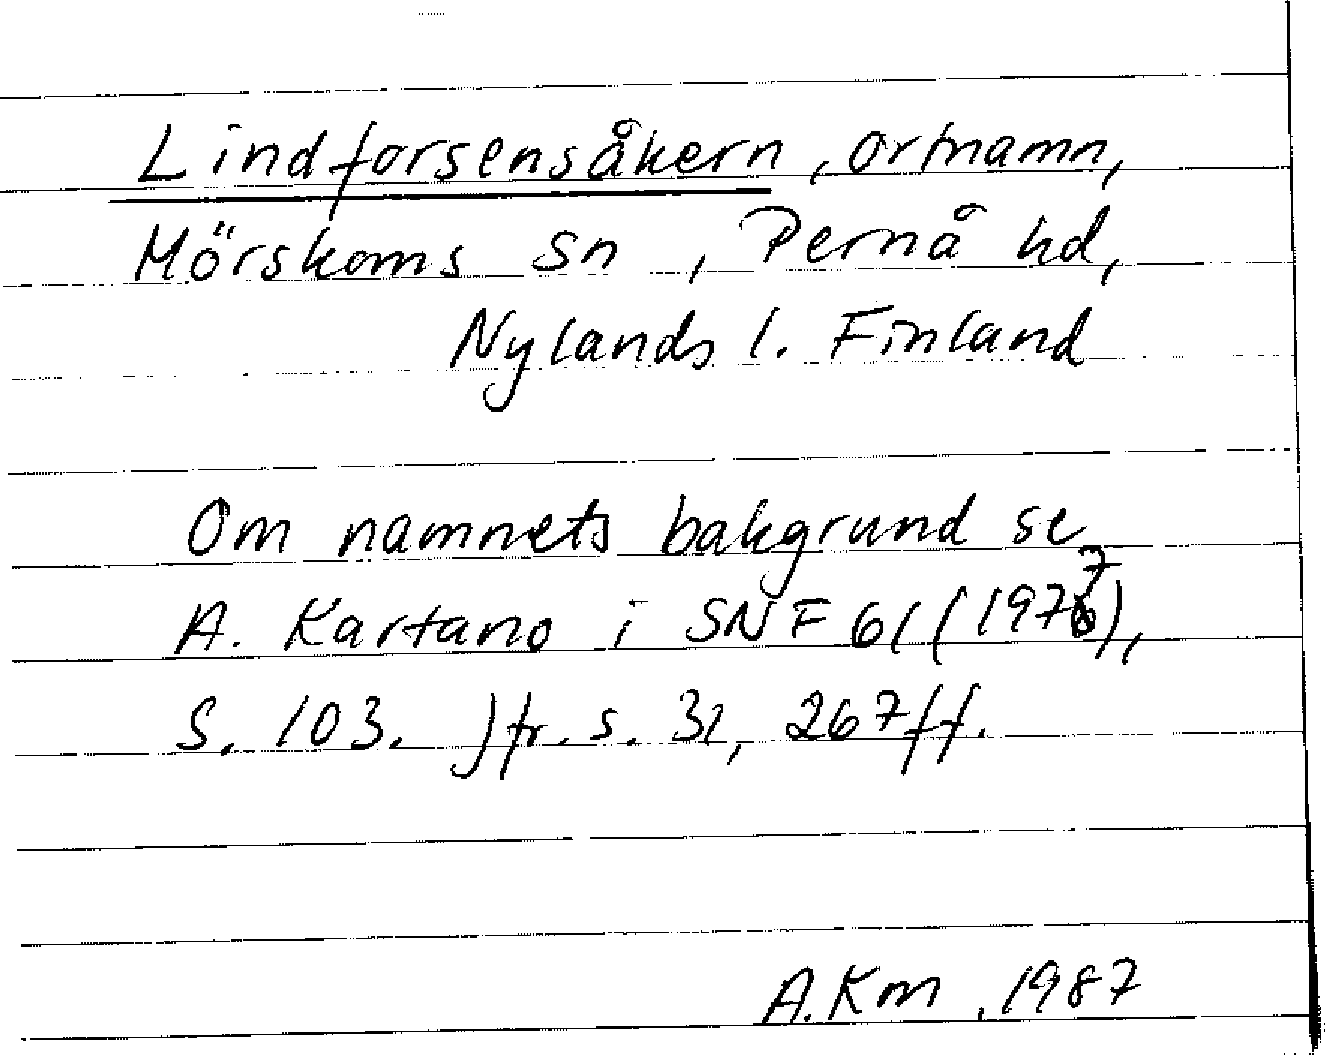 Lindforsensåkern, ortnamn,
Mörskoms sn, Pernå hd,
Nylands l. Finland
Om namnets bakgrund se
A. Kartano i SNF 61 (1977),
S. 103. Jfr. s. 31, 267 ff.
A.Km, 1987